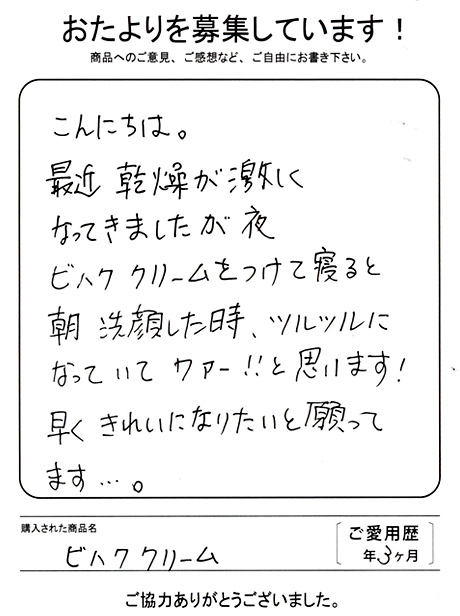 おたよりを募集しています！
商品へのご意見、ご感想など、ご自由にお書き下さい。
こんにちは。
最近 乾燥が激しく
なってきましたが 夜
ビハク クリームをつけて寝ると
朝 洗顔した時、ツルツルに
なっていて ワァー!!と思います!
早く きれいになりたいと願って
ます…。
購入された商品名
ビハク クリーム
ご愛用歴
年3ヶ月
ご協力ありがとうございました。